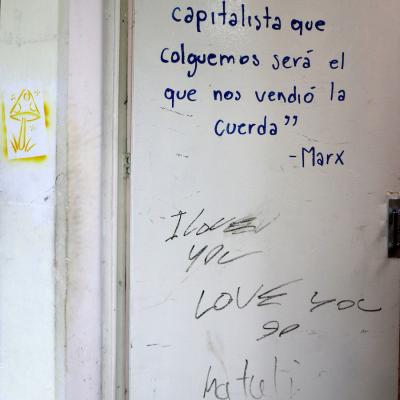 capitalista que
colguemos será el
que nos vendió la
cuerda”
-Marx
I LOVE
YOU
LOVE YOU